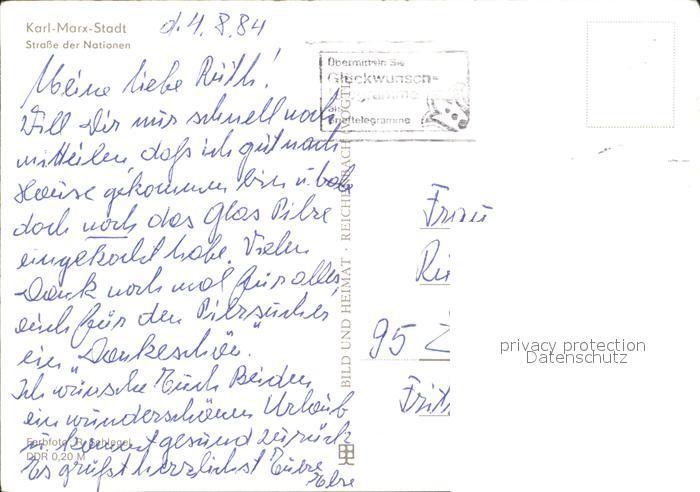 Karl-Marx-Stadt
Straße der Nationen
d. 4. 8. 84
Meine liebe Ruth!
Will Dir nur schnell noch
mitteilen, daß ich gut nach
Hause gekommen bin u. habe
doch noch das Glas Pilze
eingekocht habe. Vielen
Dank noch mal für alles,
auch für den Pilzsucher
ein „Dankeschön".
Ich wünsche Euch Beiden
ein wunderschönen Urlaub
u. kommt gesund zurück
Es grüßt herzlichst Eure
Farbfoto: R. Schlegel
DDR 0,20 M
Übermitteln Sie
Glückwunsch-
telegramme
Brieftelegramme
BILD UND HEIMAT · REICHENBACH (VOGTL
Frau
95 Z
privacy protection
Datenschutz